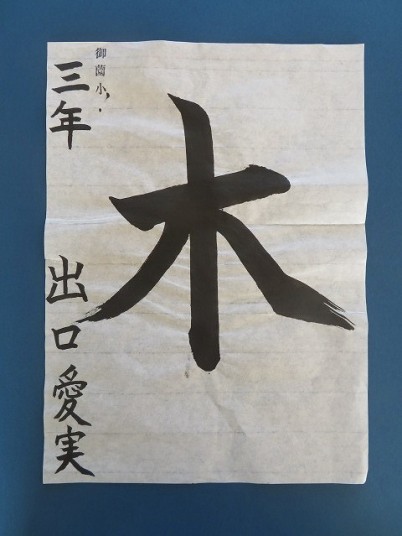 木
御薗小
三年 出口愛実